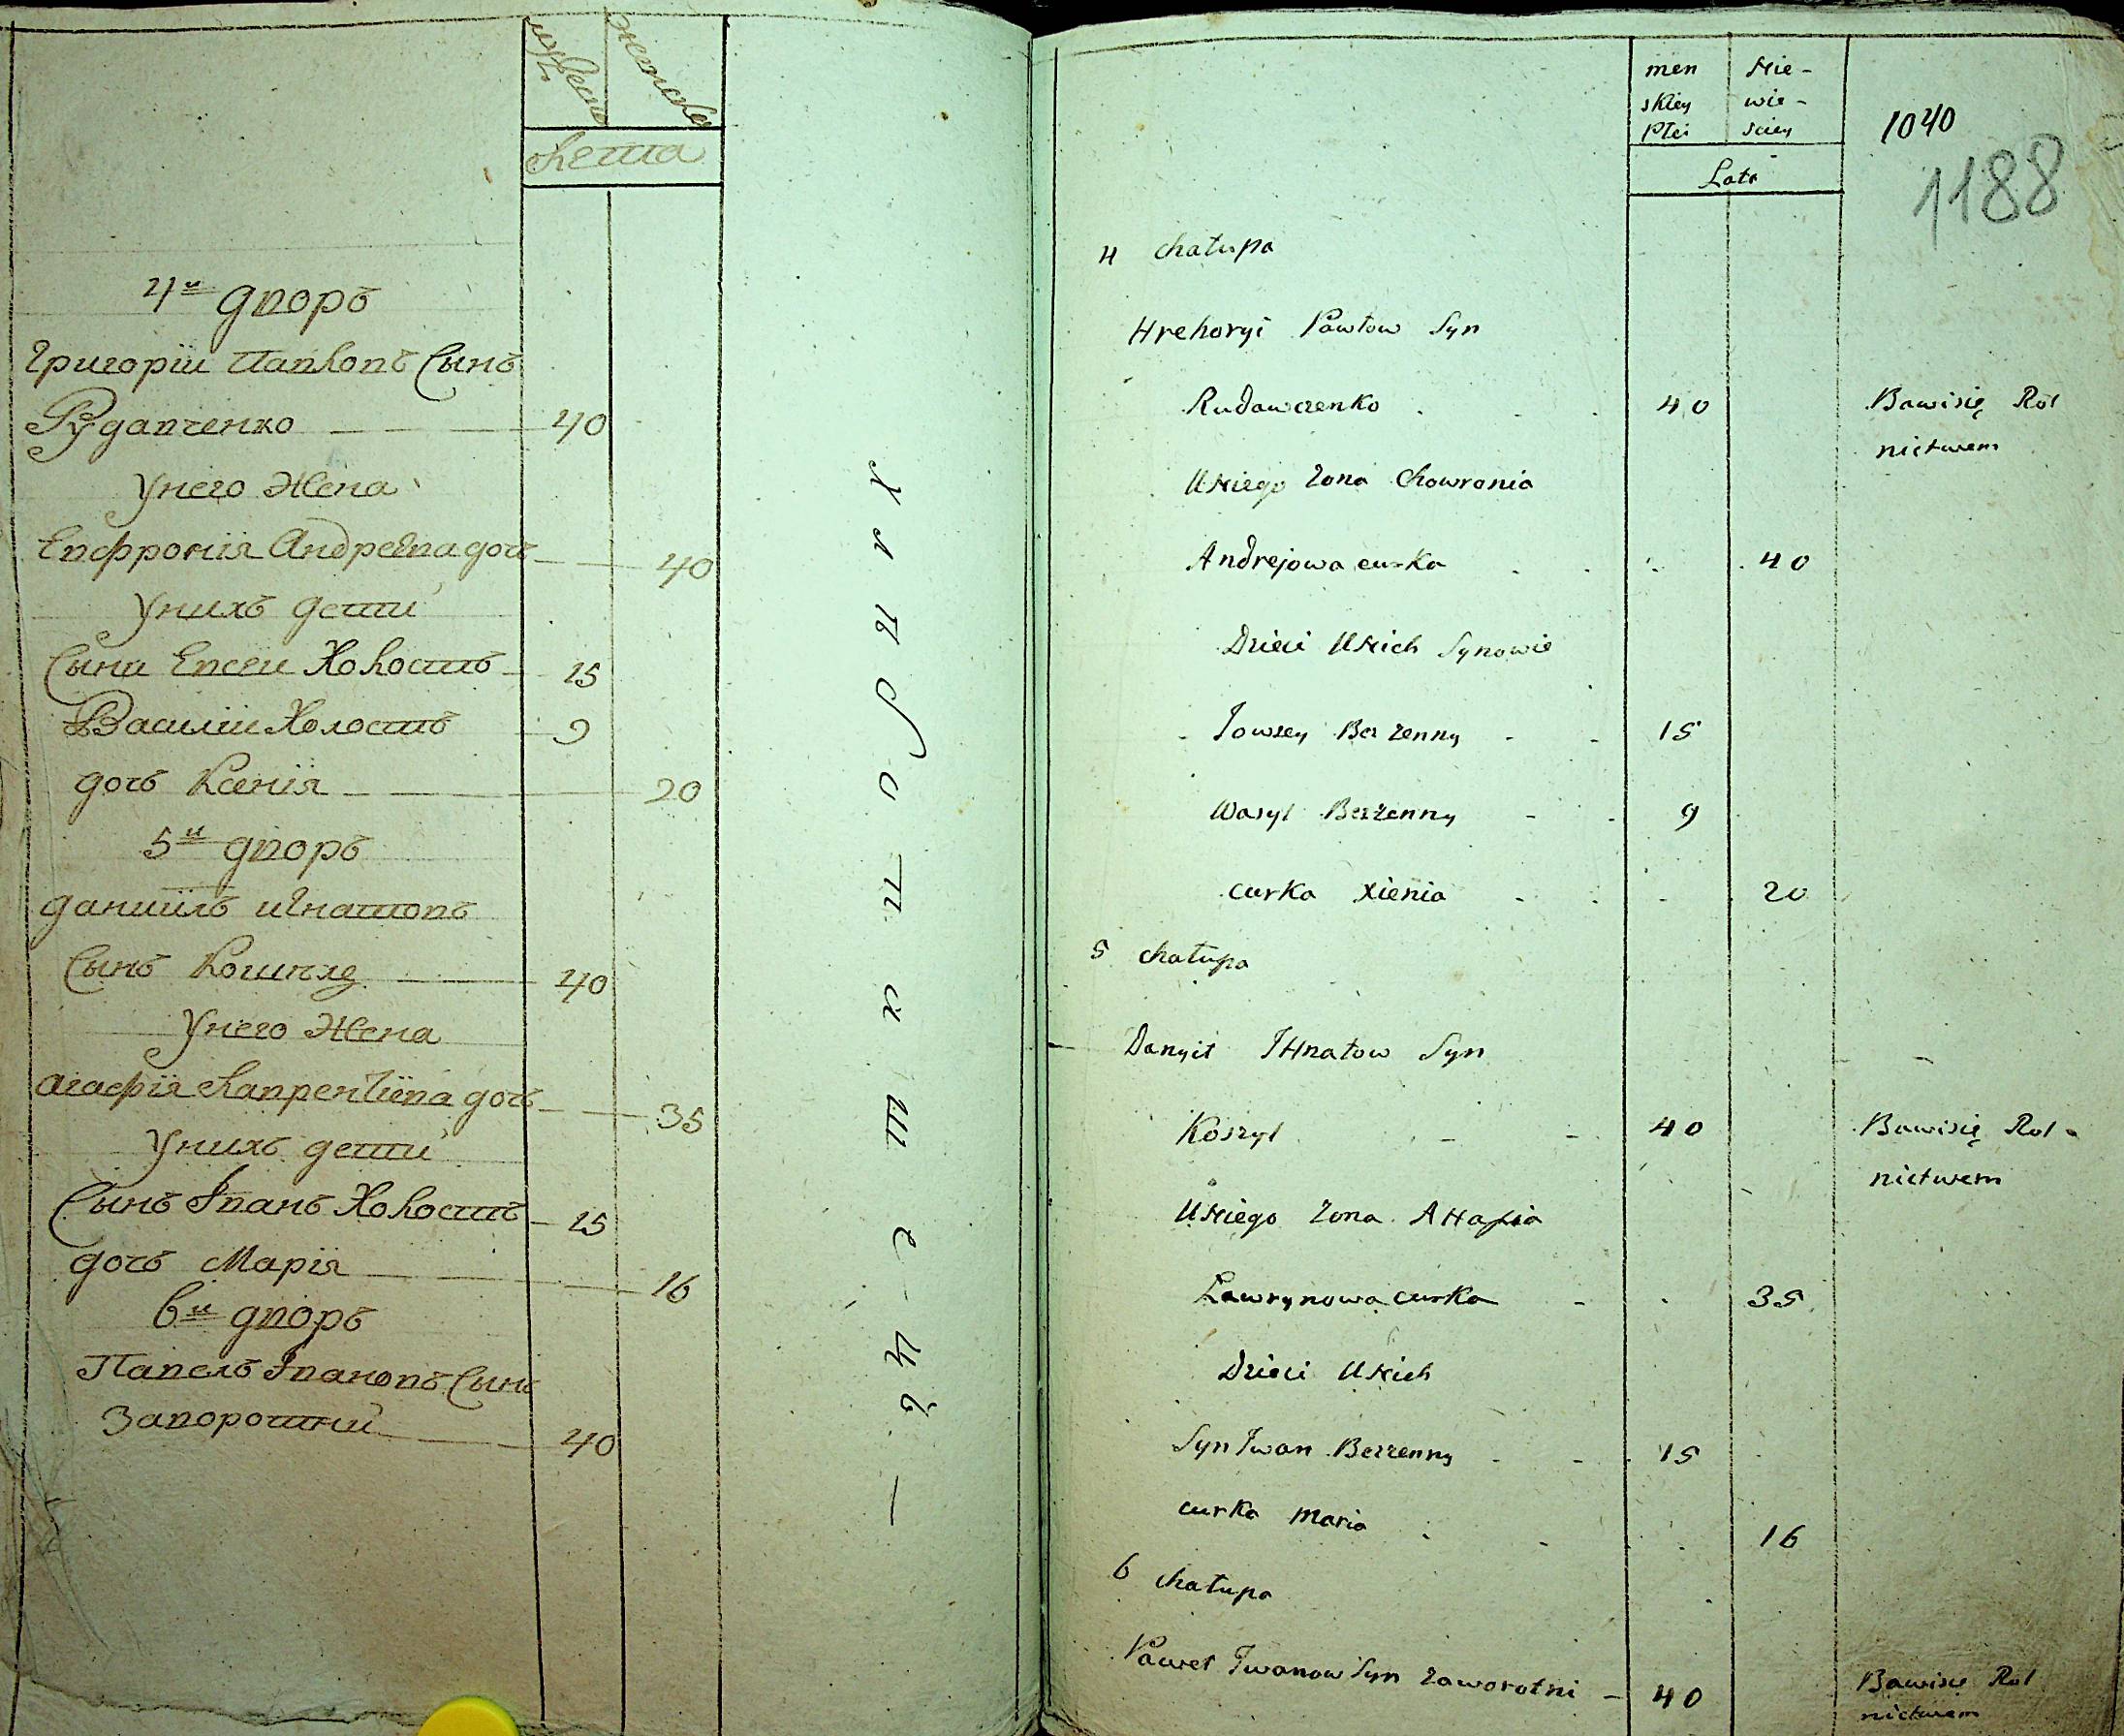 мужеска
женска
лета
4й дворъ
Григорiи Павловъ Сынъ
Рудавченко 40
Унего Жена
Евфронiя Андреевна дочъ 40
Унихъ дети
Сыни Евсеи Холостъ 15
Василiи Холостъ 9
дочъ Ксенiя 20
5й дворъ
данiилъ игнатовъ
Сынъ 40
Унего Жена
агафiя лаврентiева дочъ 35
Унихъ дети
Сынъ Iванъ Холостъ 15
дочъ Марiя 16
6й дворъ
Павелъ Iвановъ Сынъ
Заворотни 40
men
skiey
Płci
Nie-
wie-
sciey
Lata
1040
1188
4 chałupa
Hrehoryi Pawłow Syn
Rudawczenko 40 Bawisię Rol
nictwem
Uniego Zona Chowronia
Andrejowa curka 40
Dzieci Unich Synowie
Jowsey Bezżenny 15
Wasyl Bezżenny 9
curka Xienia 20
5 chałupa
Danyił Ihnatow Syn
Koszyl 40 Bawisię Rol-
nictwem
Uniego Zona Ahafia
Ławrynowa curka 35
Dzieci Unich
Syn Iwan Bezżenny 15
curka Maria 16
6 chałupa
Paweł Iwanow Syn Zaworotni 40 Bawisię Rol
nictwem